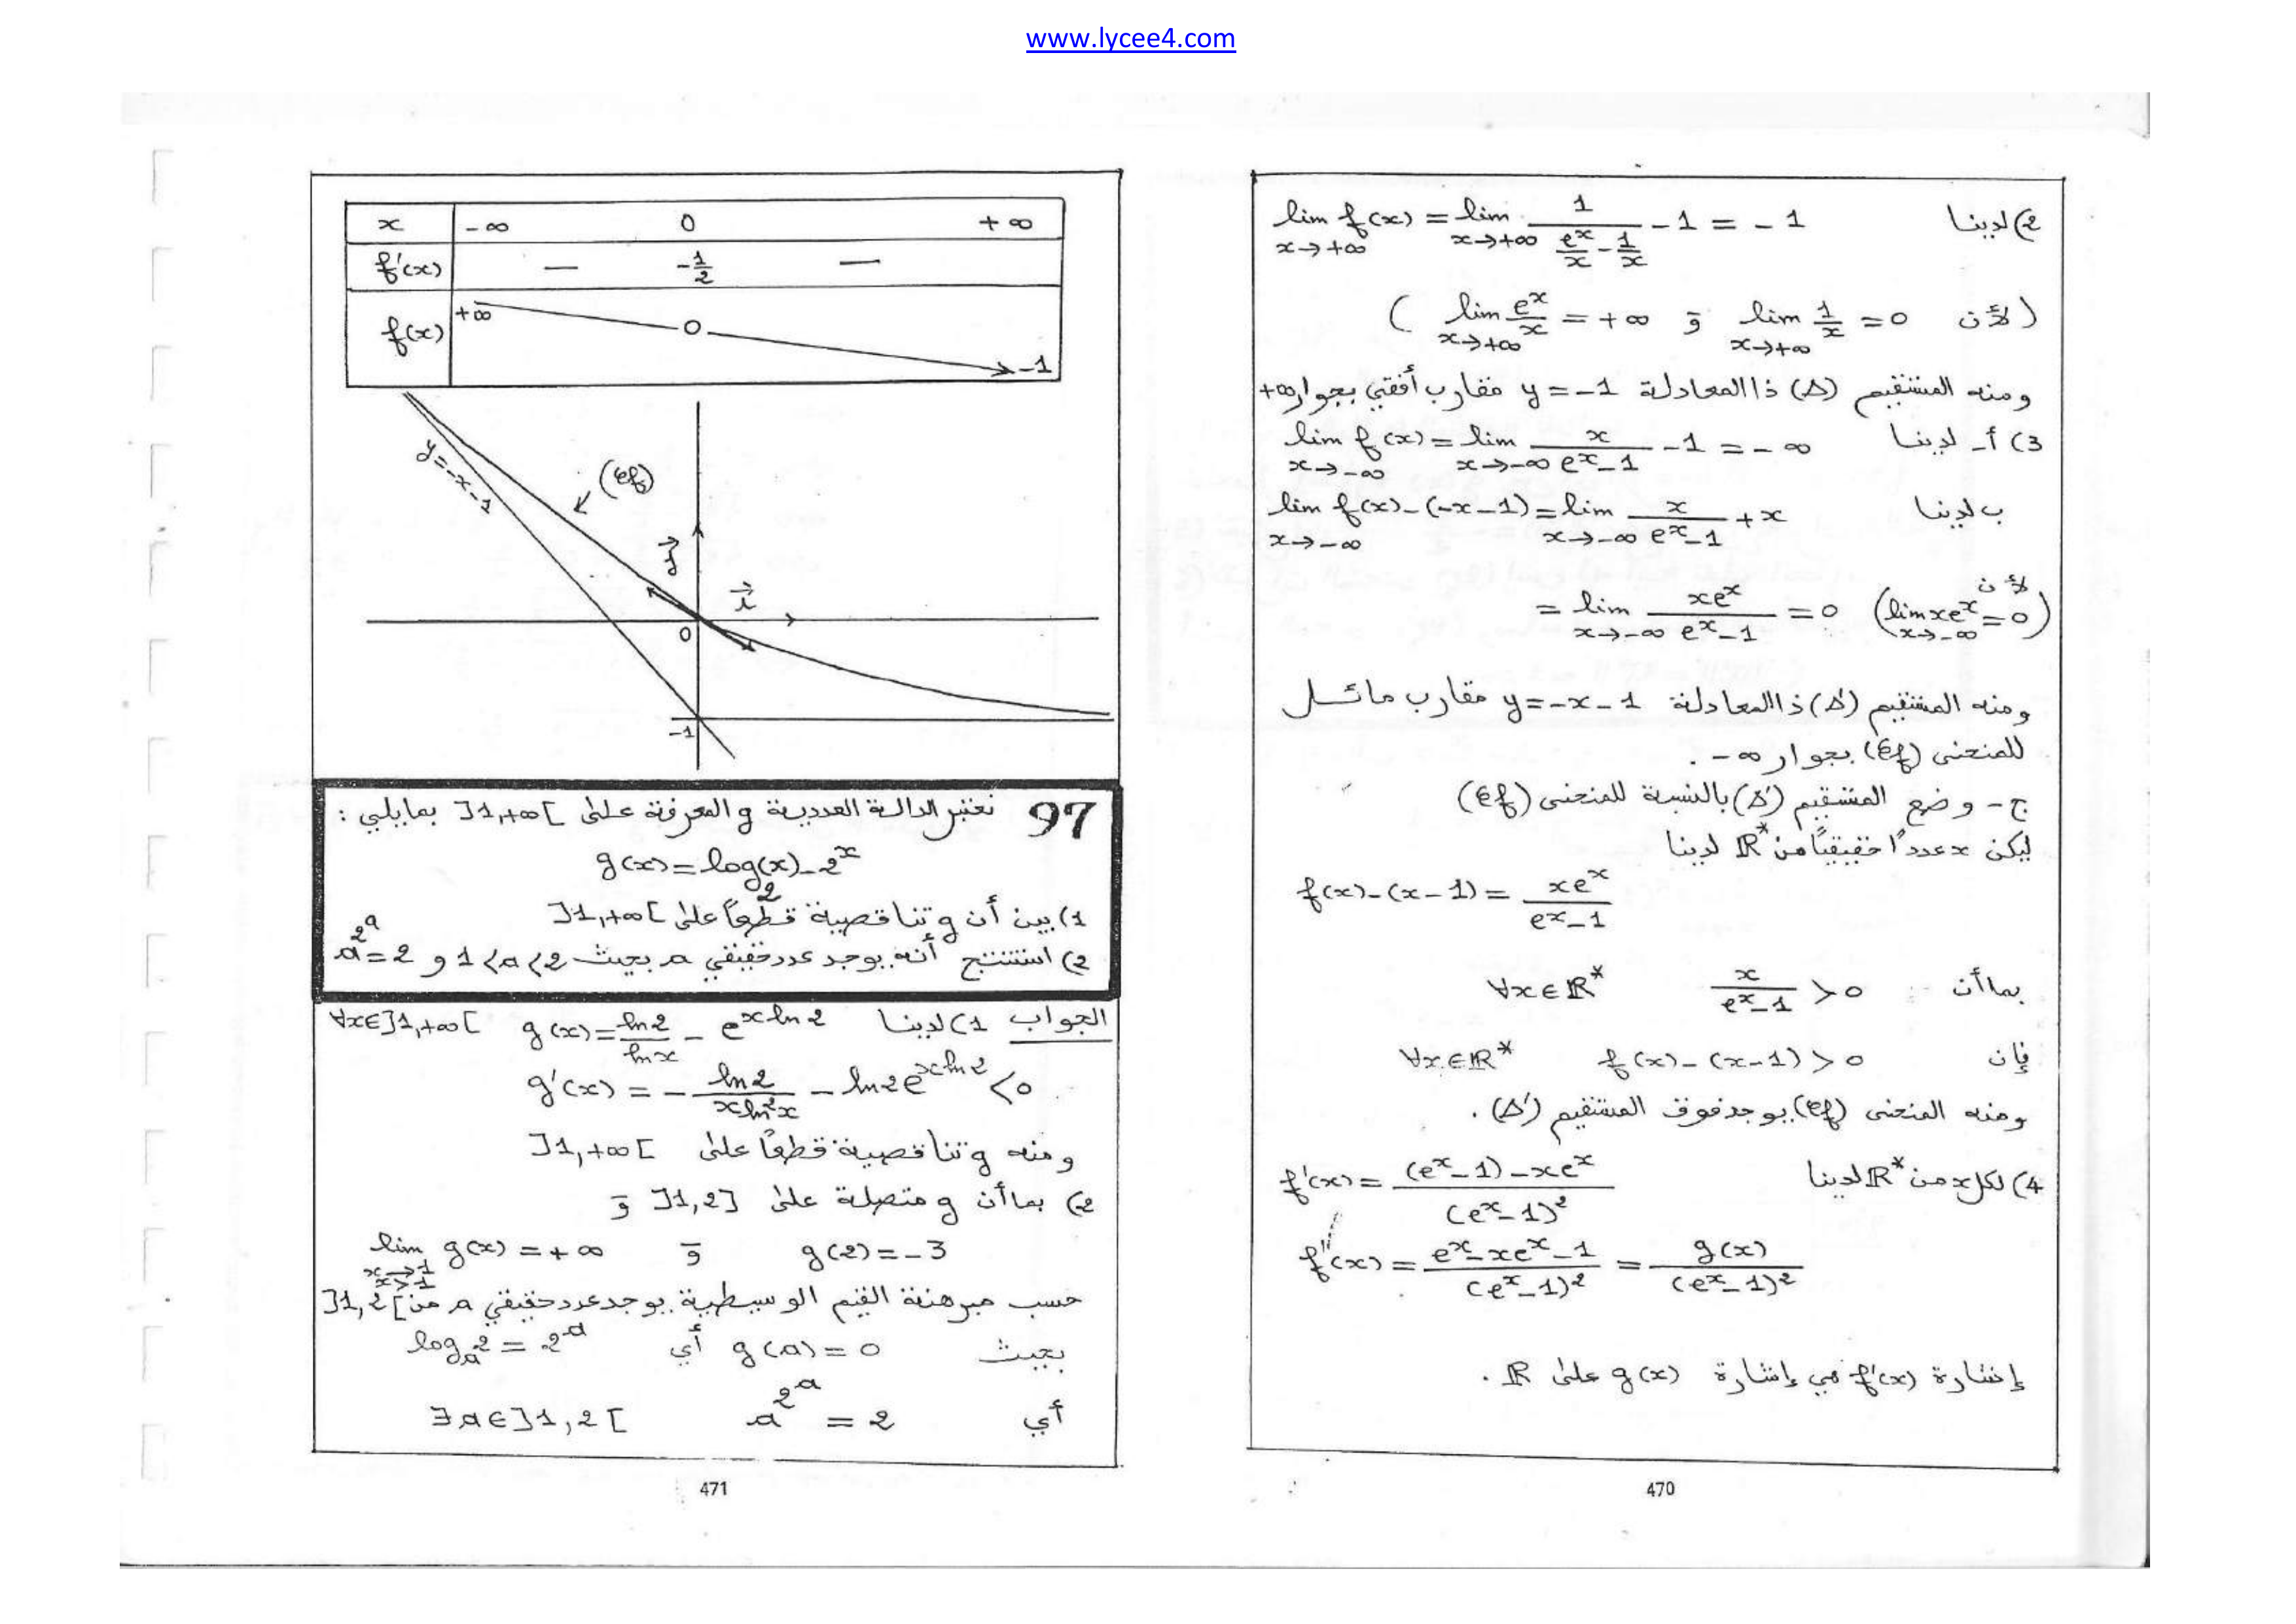 www.lycee4.com
2) لدينا lim f(x) = lim 1/(e^x/x - 1/x) - 1 = -1
x→+∞ x→+∞
(لأن lim 1/x = 0 و lim e^x/x = +∞)
x→+∞ x→+∞
ومنه المستقيم (Δ) ذا المعادلة y = -1 مقارب أفقي بجوار +∞
3) أ- لدينا lim f(x) = lim x/(e^x-1) - 1 = -∞
x→-∞ x→-∞
ب لدينا lim f(x) - (-x-1) = lim x/(e^x-1) + x
x→-∞ x→-∞
= lim xe^x/(e^x-1) = 0 (لأن lim xe^x = 0)
x→-∞ x→-∞
ومنه المستقيم (Δ') ذا المعادلة y = -x-1 مقارب مائل
للمنحنى (Cf) بجوار -∞ .
ج- وضع المستقيم (Δ') بالنسبة للمنحنى (Cf)
ليكن x عددًا حقيقيًا من ℝ* لدينا
f(x) - (x-1) = xe^x/(e^x-1)
بما أن x/(e^x-1) > 0 ∀x∈ℝ*
فإن f(x) - (x-1) > 0 ∀x∈ℝ*
ومنه المنحنى (Cf) يوجد فوق المستقيم (Δ') .
4) لكل x من ℝ* لدينا f'(x) = ((e^x-1) - xe^x)/(e^x-1)²
f'(x) = (e^x - xe^x - 1)/(e^x-1)² = g(x)/(e^x-1)²
إشارة f'(x) هي إشارة g(x) على ℝ .
470
x -∞ 0 +∞
f'(x) — -1/2 —
f(x) +∞ 0 -1
y=-x-1
(Cf)
j
i
0
-1
97 نعتبر الدالة العددية g المعرفة على ]1,+∞[ بمايلي :
g(x) = log_x(2) - 2^x
1) بين أن g تناقصية قطعًا على ]1,+∞[
2) استنتج أنه يوجد عدد حقيقي a بحيث 1<a<2 و a^(2^a) = 2
الجواب 1) لدينا g(x) = ln2/lnx - e^(xln2) ∀x∈]1,+∞[
g'(x) = - ln2/(xln²x) - ln2e^(xln2) < 0
ومنه g تناقصية قطعًا على ]1,+∞[
2) بما أن g متصلة على ]1,2] و
g(2) = -3 و lim g(x) = +∞
x→1
x>1
حسب مبرهنة القيم الوسيطية يوجد عدد حقيقي a من ]1,2[
بحيث g(a) = 0 أي log_a 2 = 2^a
أي a^(2^a) = 2 ∃a∈]1,2[
471